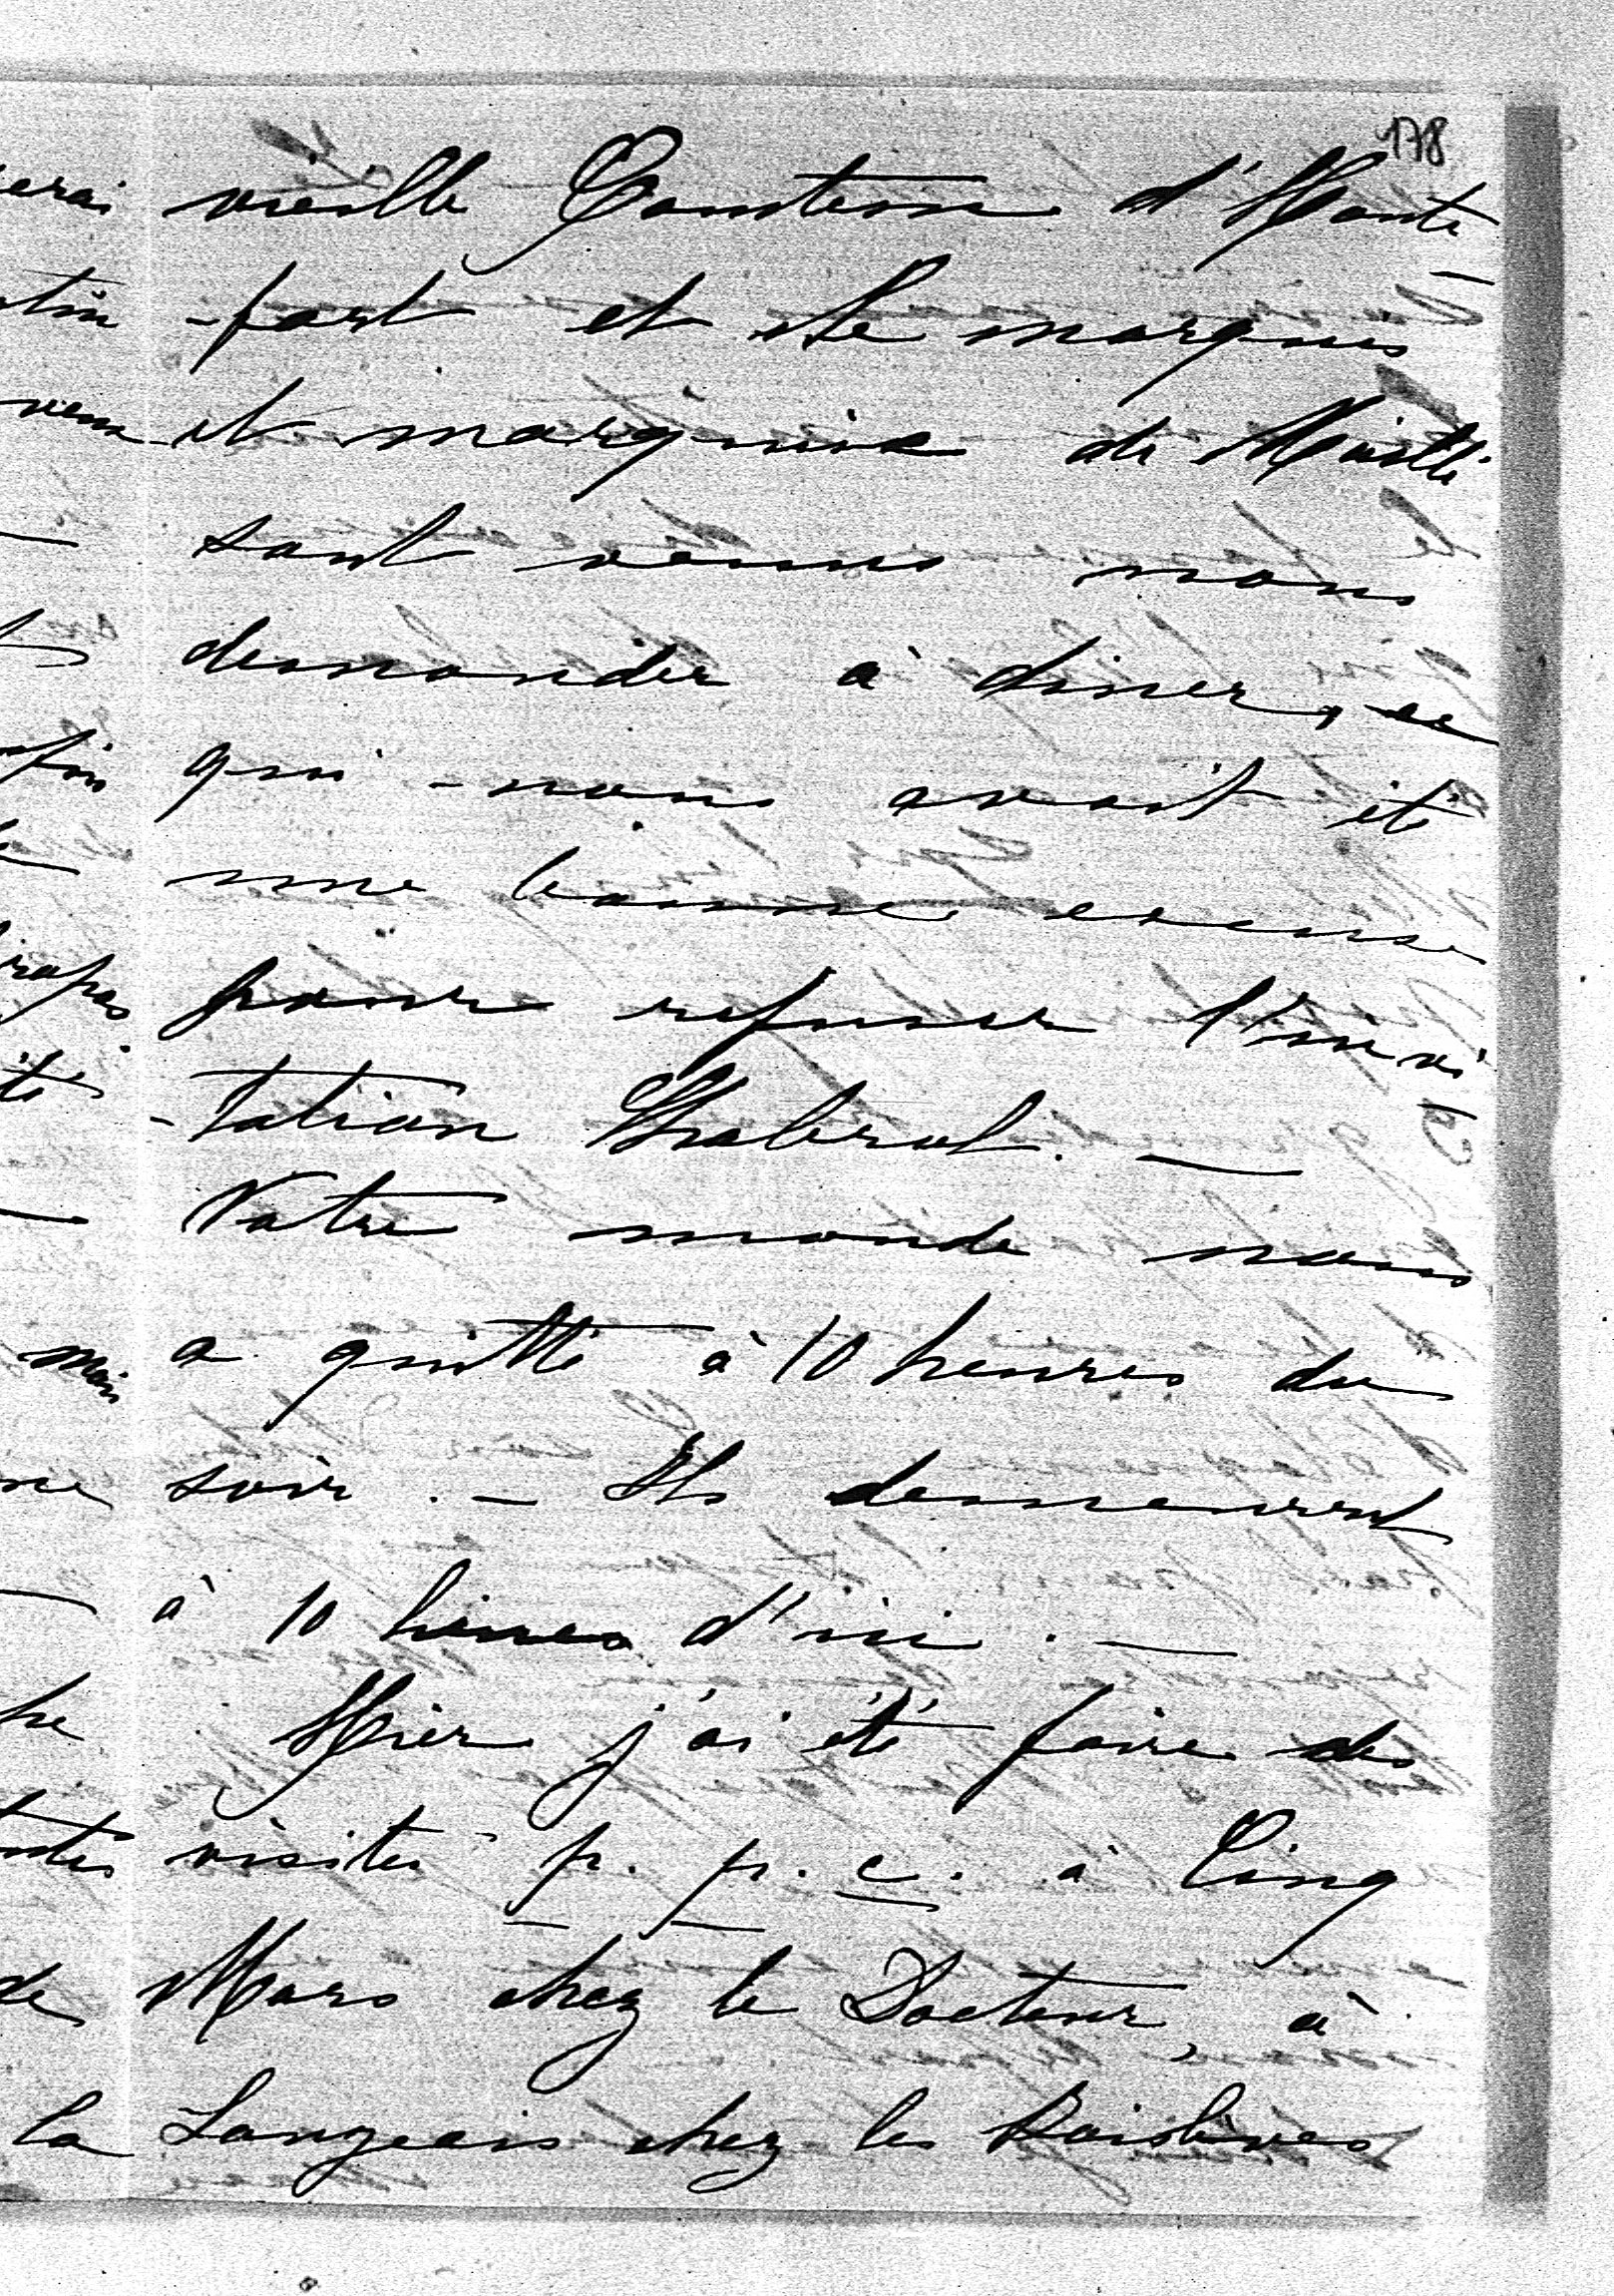 178
vieille Comtesse d'Haute
-fort et le marquis
et marquise de Maillé
sont venus nous
demander à diner, ce
qui nous avait été
une bonne excuse
pour refuser l'invi
-tation Chabrol. —
Notre monde nous
a quitté à 10 heures du
soir. — Ils demeurent
à 10 lieues d'ici. —
Hier j'ai été faire des
visites p. p. c. à Cinq
Mars chez le Docteur, à
Langeais chez les